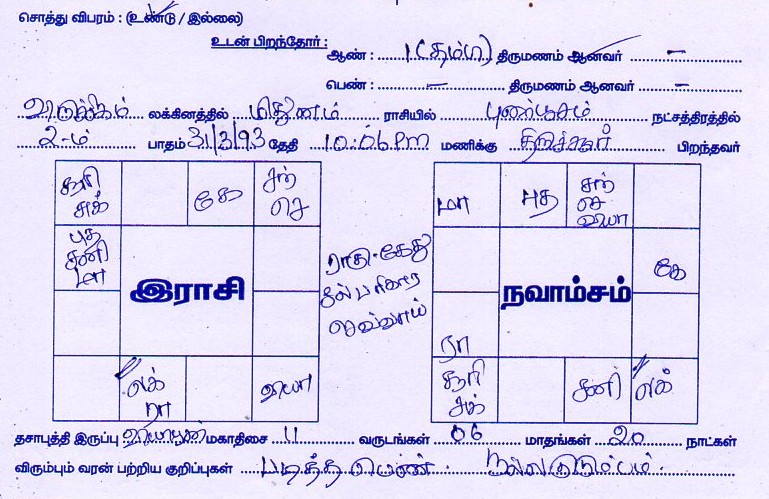 சொத்து விபரம் : (உண்டு / இல்லை)
உடன் பிறந்தோர் :
ஆண் : 1 (தம்பி) திருமணம் ஆனவர் –
பெண் : – திருமணம் ஆனவர் –
லக்கினத்தில் மிதுனம் ராசியில் புனர்பூசம் நட்சத்திரத்தில்
2-ம் பாதம் 31/3/93 தேதி 10.06 PM மணிக்கு திருச்சூர் பிறந்தவர்
சூரி சுக்
கே
சந் செ
புத சனி மா
இராசி
லக் ரா
வியா
ராகு-கேது
செவ்வாய்
மா
புத
சந் செ வியா
கே
நவாம்சம்
ரா
சூரி சுக்
சனி
லக்
தசாபுத்தி இருப்பு வியாழன் மகாதிசை 11 வருடங்கள் 06 மாதங்கள் 20 நாட்கள்
விரும்பும் வரன் பற்றிய குறிப்புகள் படித்த பெண் நல்ல குடும்பம்.